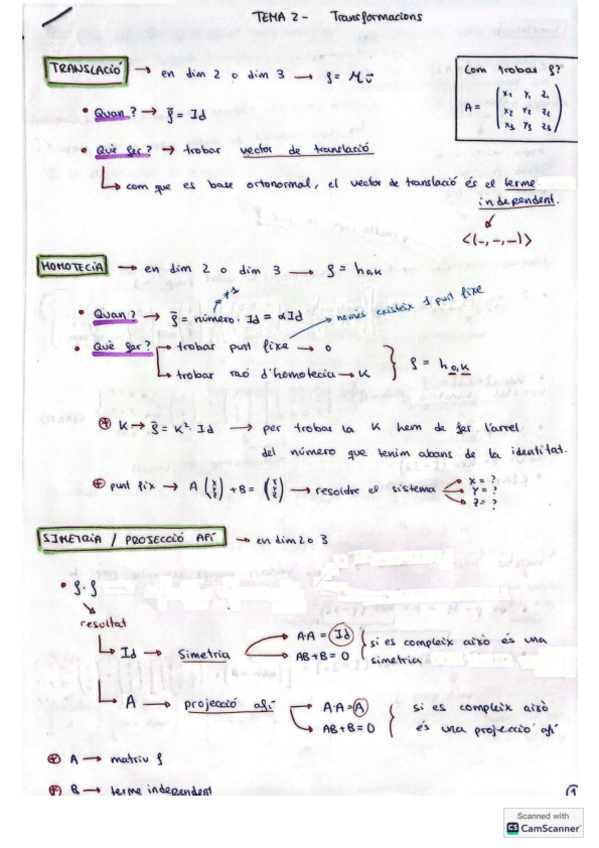 TEMA 2 - Transformacions
TRANSLACIÓ → en dim 2 o dim 3 → f = Mv⃗
Com trobar f?
A = (x1 y1 z1
x2 y2 z2
x3 y3 z3)
• Quan? → f̄ = Id
• Què fer? → trobar vector de translació
↳ com que es base ortonormal, el vector de translació és el terme
independent.
<(-,-,-)>
HOMOTECIA → en dim 2 o dim 3 → f = h0,K
≠1
• Quan? → f̄ = número · Id = αId → només existeix 1 punt fixe
• Què fer? → trobar punt fixe → 0
↳ trobar raó d'homotecia → K } f = h0,K
⊕ K → f̄ = K² · Id → per trobar la K hem de fer l'arrel
del número que tenim abans de la identitat.
⊕ punt fix → A (x y z) + B = (x y z) → resoldre el sistema x = ?
y = ?
z = ?
SIMETRIA / PROJECCIÓ AFÍ → en dim 2 o 3
• f · f
resultat
↳ Id → Simetria → A·A = Id
→ AB + B = 0 { si es compleix això és una
simetria
↳ A → projecció afí → A·A = A
→ AB + B = 0 { si es compleix això
és una projecció afí
⊕ A → matriu f
⊕ B → terme independent
1
Scanned with
CS CamScanner